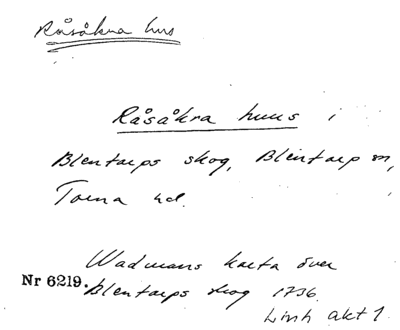 Råsåkra hus
Råsåkra huus i
Blentarps skog, Blentarp sn,
Torna hd.
Wadmans karta över
Nr 6219.
Blentarps skog 1736.
Linh akt 1